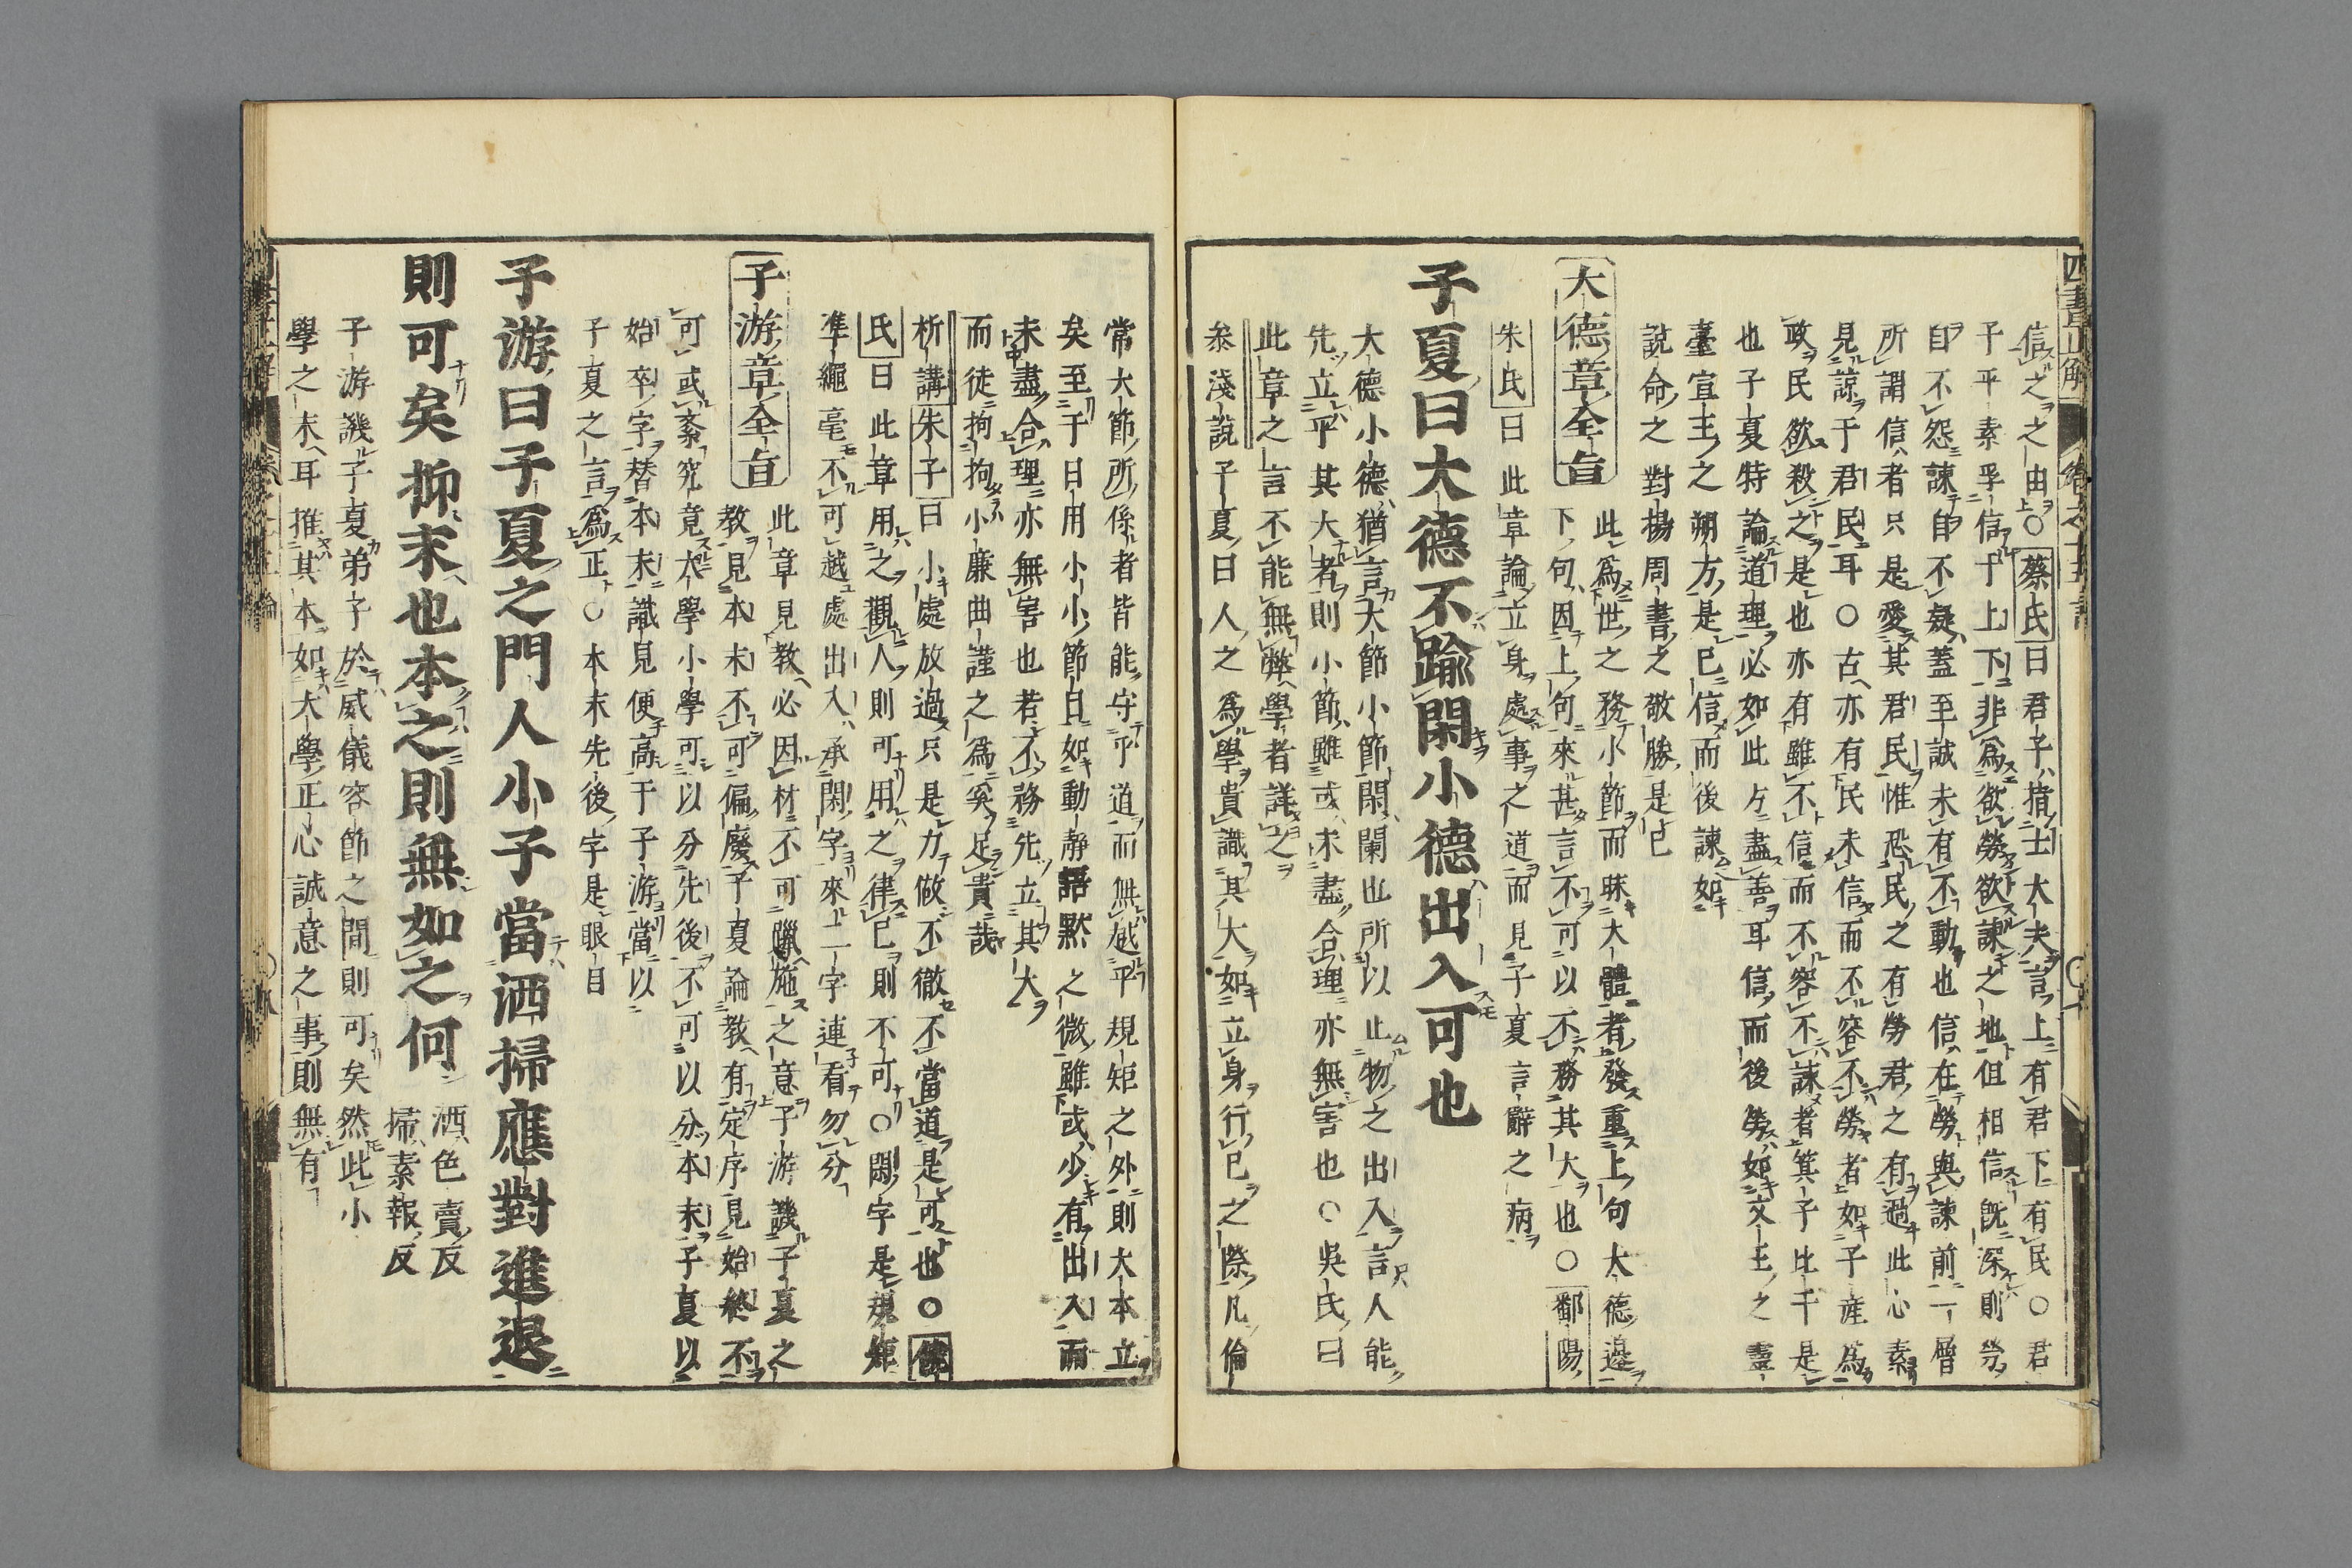 信之之由○蔡氏曰君子指士大夫言上有君下有民○君
子平素孚信于上下非爲欲勞欲諫之地但相信旣深則勞
自不怨諫自不疑蓋至誠未有不動也信在勞與諫前一層
所謂信者只是愛其君民惟恐民之有勞君之有過此心素
見諒于君民耳○古亦有民未信而不容不勞者如子產爲
政民欲殺之是也亦有雖不信而不容不諫者箕子比干是
也子夏特論道理必如此方盡善耳信而後勞如文王之靈
臺宣王之朔方是已信而後諫如
說命之對揚周書之敬勝是已
大德章全旨
此爲世之務小節而昧大體者發重上句大德邊
下句因上句來甚言不可以不務其大也○鄱陽
朱氏曰此章論立身處事之道而見子夏言辭之病
子夏曰大德不踰閑小德出入可也
大德小德猶言大節小節閑闌也所以止物之出入言人能
先立乎其大者則小節雖或未盡合理亦無害也○吳氏曰
此章之言不能無弊學者詳之
叅淺說子夏曰人之爲學貴識其大如立身行己之際凡倫
常大節所係者皆能守乎道而無越乎規矩之外則大本立
矣至于日用小小節目如動靜語默之微雖或少有出入而
未盡合理亦無害也若不務先立其大
而徒拘拘小廉曲謹之爲奚足貴哉
析講朱子曰小處放過只是力做不徹不當道是可也○
氏曰此章用之觀人則可用之律己則不可○閑字是規矩
準繩毫不可越處出入承閑字來二字連看勿分
子游章全旨
此章見教必因材不可躐施之意子游譏子夏之
教見本末不可偏廢子夏論教有定序見始終不
可或紊究竟大學小學可以分先後不可以分本末子夏以
始卒字替本末識見便高于子游當以
子夏之言爲正○本末先後字是眼目
子游曰子夏之門人小子當洒掃應對進退
則可矣抑末也本之則無如之何
洒色賣反
掃素報反
子游譏子夏弟子於威儀容節之間則可矣然此小
學之末耳推其本如大學正心誠意之事則無有